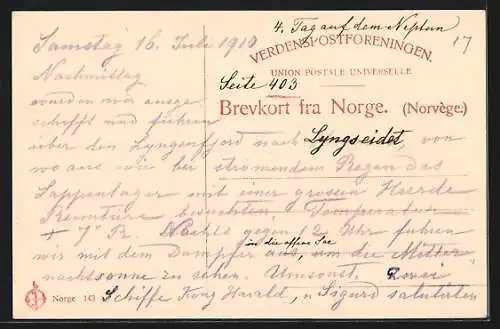 4. Tag auf dem Neptun
17
Samstag 16. Juli 1910
VERDENSPOSTFORENINGEN.
UNION POSTALE UNIVERSELLE
Nachmittag
Seite 403
wurden wir ausge-
Brevkort fra Norge. (Norvège.)
schifft und fuhren
über den Lyngenfjord nach Lyngseidet, von
wo aus wir bei strömendem Regen das
Lappenlager mit einer grossen Heerde
Renntiere besuchten. Temperatur
+ 7° R. Nachts gegen 12 Uhr fuhren
in die offene See
wir mit dem Dampfer aus, um die Mitter-
nachtsonne zu sehen. Umsonst. Zwei
Norge 143 Schiffe Kong Harald, u Sigurd salutirten